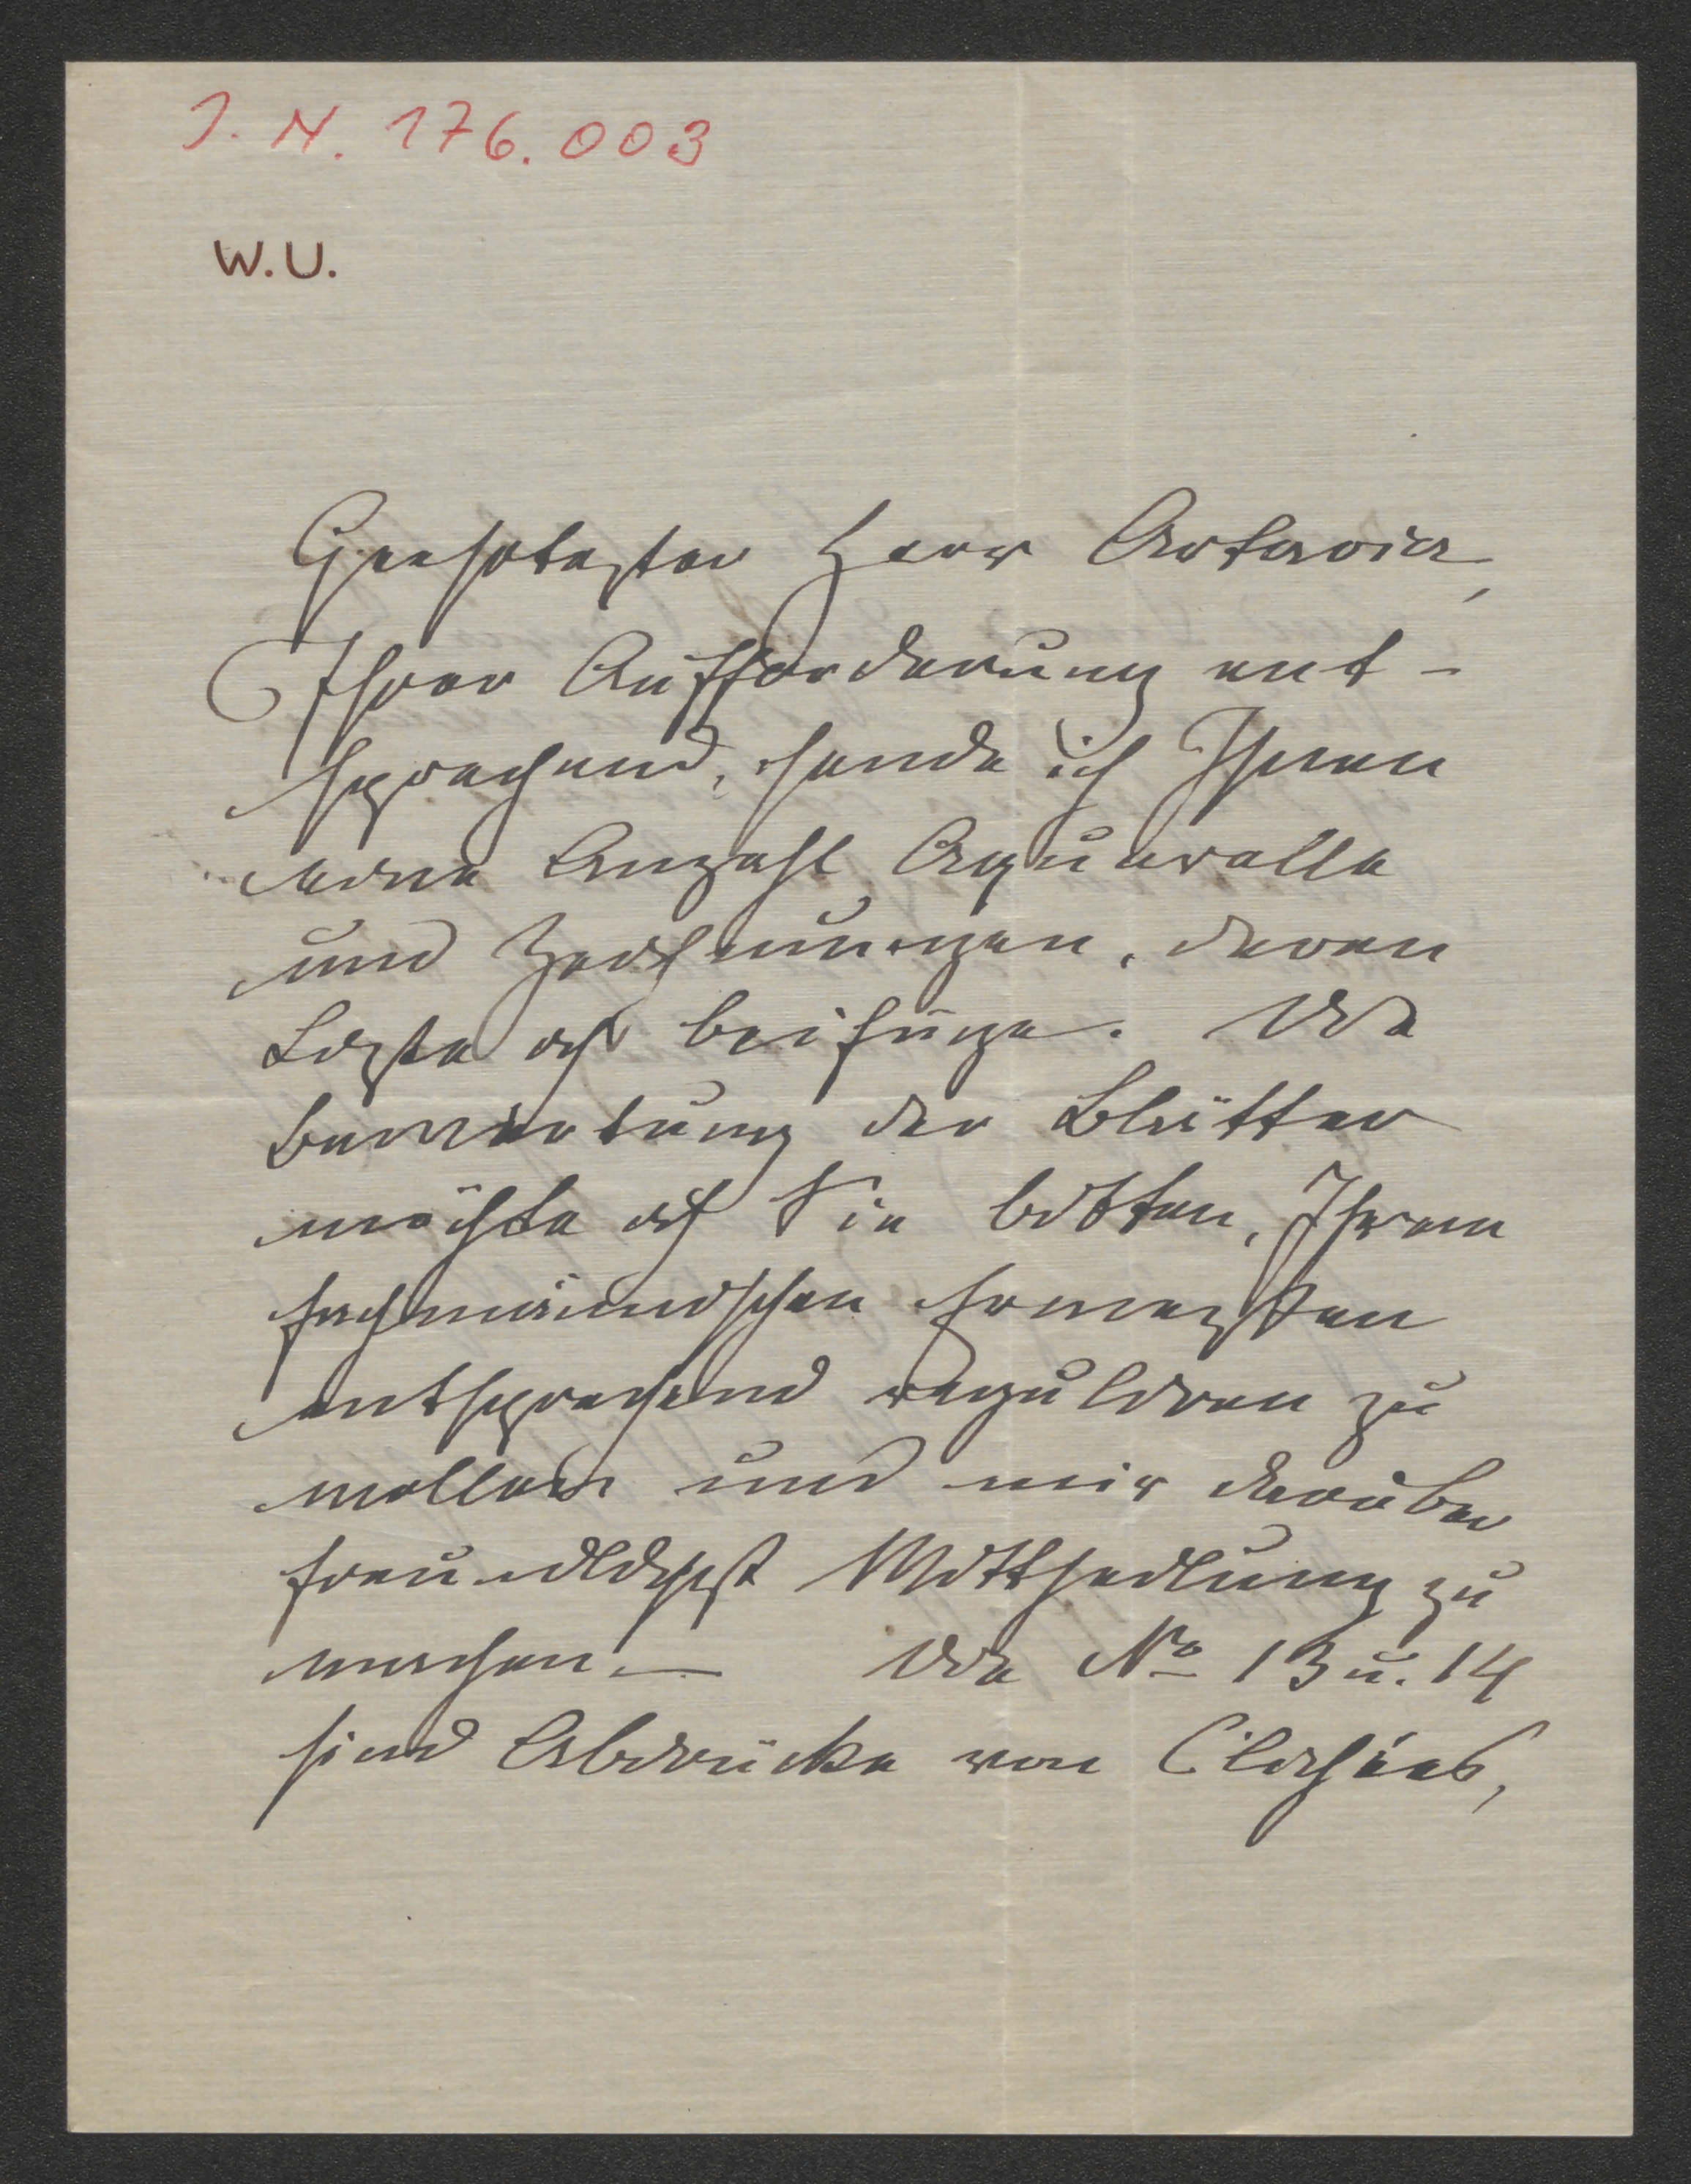 I. N. 176.003
W. U.
Geehrtester Herr Artaria,
Ihrer Aufforderung ent-
sprechend, sende ich Ihnen
eine Anzahl Aquarelle
und Zeichnungen, deren
Liste ich beifüge. Die
Bewertung der Blätter
möchte ich Sie bitten, Ihrem
fachmännischen Ermessen
entsprechend reguliren zu
wollen und mir darüber
freundlichst Mittheilung zu
machen. — Die No 13 u. 14
sind Abdrücke von Clichées,